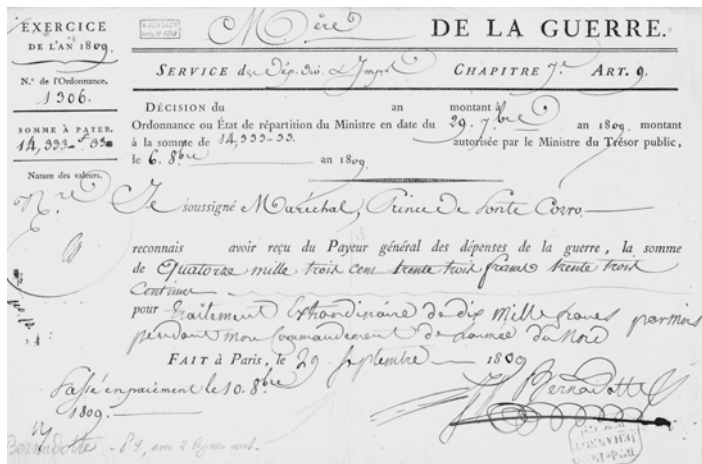 EXERCICE
DE L'AN 1809.
N.º de l'Ordonnance.
1306.
SOMME À PAYER.
14,333-f.33c
Nature des valeurs.
Nre
Mère DE LA GUERRE.
SERVICE des Dép. div. & Impr. CHAPITRE 7e ART. 9.
DÉCISION du an montant à
Ordonnance ou État de répartition du Ministre en date du 29. 7bre an 1809. montant
à la somme de 14,333-33. autorisée par le Ministre du Trésor public,
le 6. 8bre an 1809.
Je soussigné Maréchal, Prince de Ponte Corvo
reconnais avoir reçu du Payeur général des dépenses de la guerre, la somme
de Quatorze mille trois cens trente trois francs trente trois
Centimes
pour traitement Extraordinaire de dix mille francs par mois
pendant mon Commandement de l'armée du Nord
FAIT à Paris, le 29 Septembre 1809
Passé en paiement le 10. 8bre
1809.
Bernadotte
Bernadotte - P.S, avec 2 lignes aut.